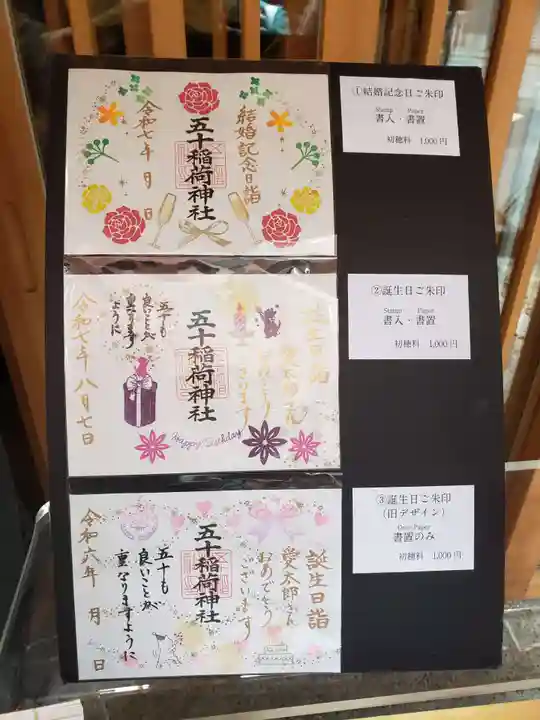 結婚記念日詣
五十稲荷神社
令和七年 月 日
①結婚記念日ご朱印
Stamp Paper
書入・書置
初穂料 1,000円
誕生日詣
愛太郎さん
おめでとう
ございます
五十稲荷神社
五十も
良いことが
重なります
ように
令和七年八月七日
Happy Birthday
②誕生日ご朱印
Stamp Paper
書入・書置
初穂料 1,000円
誕生日詣
愛太郎さん
おめでとう
ございます
五十稲荷神社
五十も
良いことが
重なりますように
令和六年 月 日
③誕生日ご朱印
(旧デザイン)
Only Paper
書置のみ
初穂料 1,000円